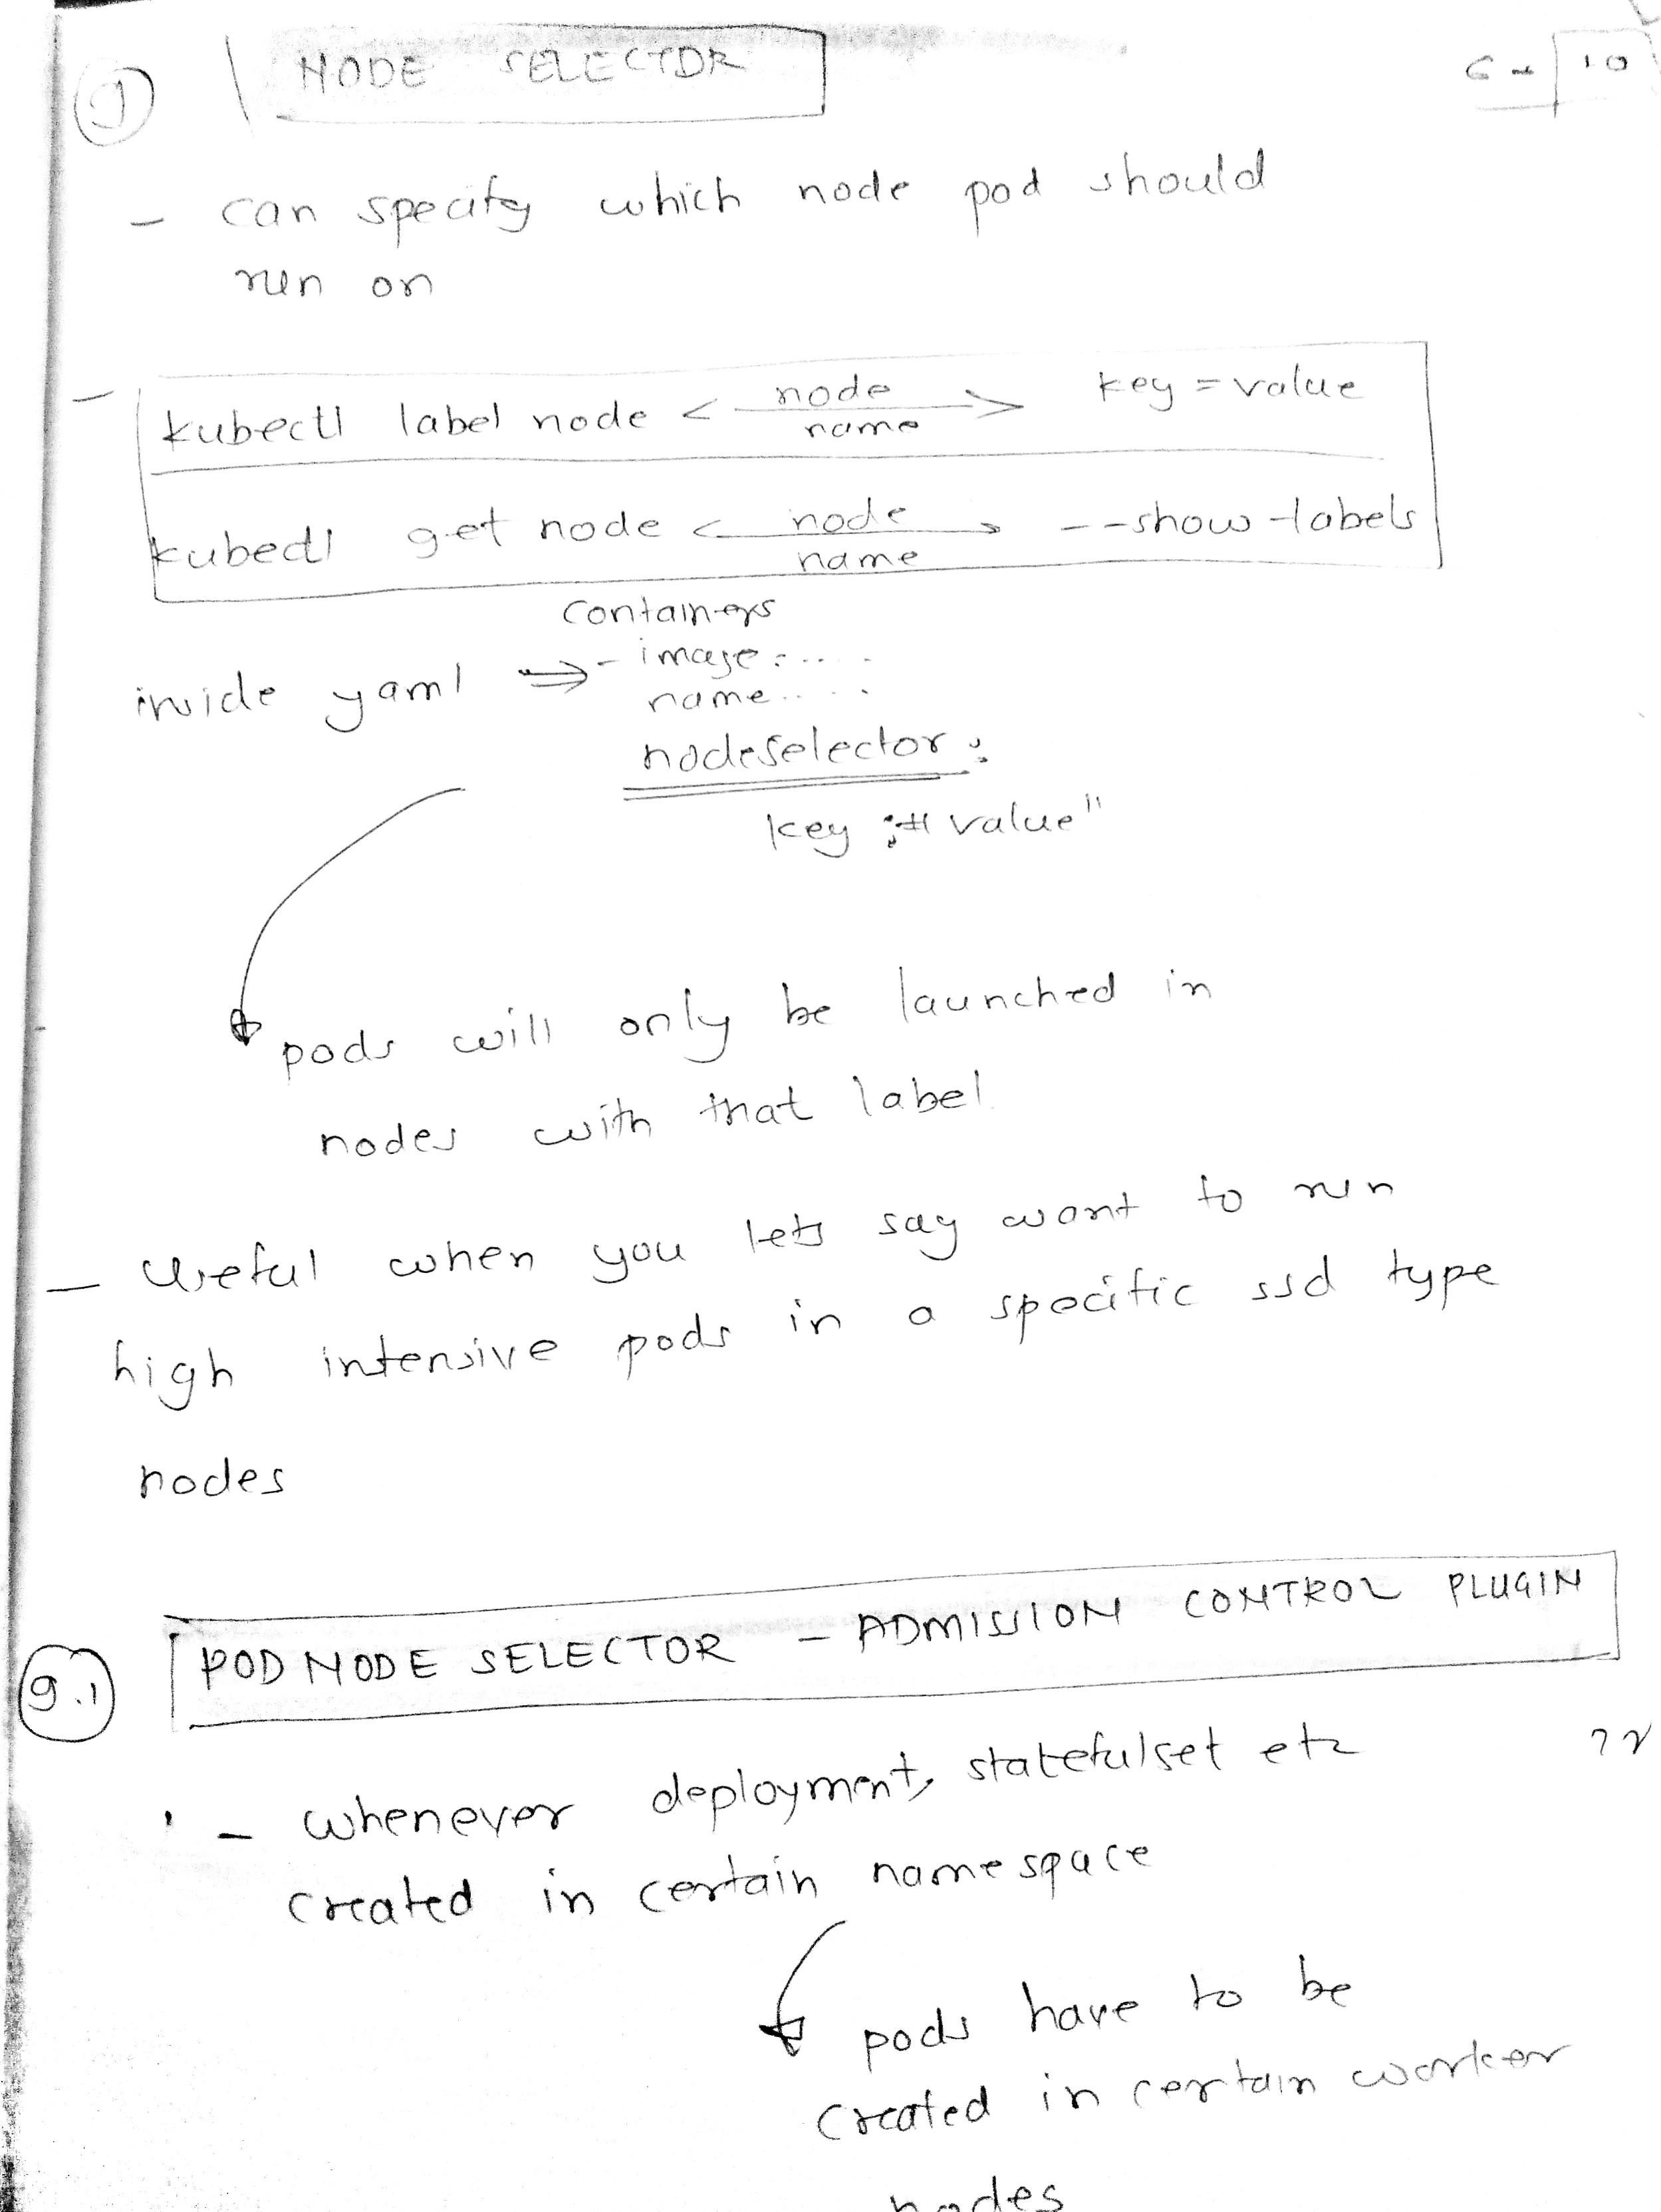 9 NODE SELECTOR
10
- can specify which node pod should
run on
- kubectl label node <node name> key=value
kubectl get node <node name> --show-labels
containers
inside yaml ⇒ - image: .....
name .....
nodeSelector:
key : "value"
pods will only be launched in
nodes with that label
- Useful when you lets say want to run
high intensive pods in a specific ssd type
nodes
9.1 POD NODE SELECTOR - ADMISSION CONTROL PLUGIN
- whenever deployment, statefulset etc
created in certain namespace
pods have to be
created in certain worker
nodes